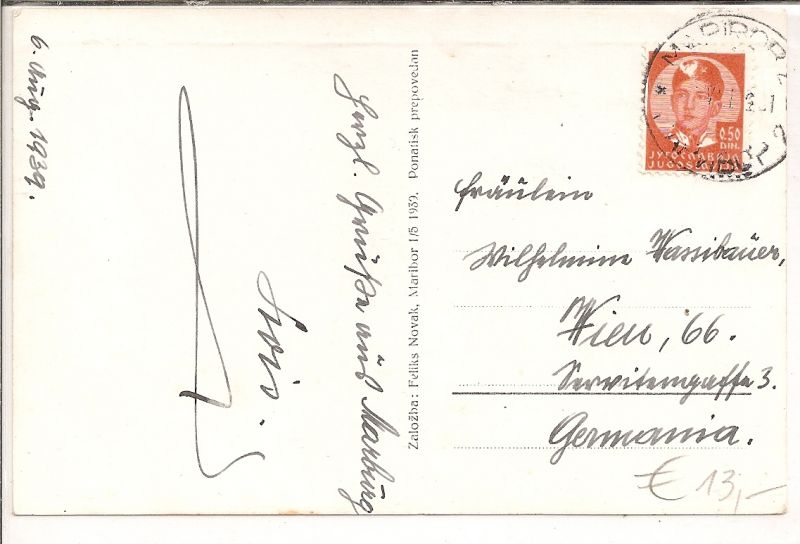 6. Aug. 1939.
Herzl. Grüße aus Marburg
Lois.
Založba: Feliks Novak, Maribor 1/5 1939. Ponatisk prepovedan
MARIBOR
0.50
DIN.
Fräulein
Wilhelmine Wassibauer,
Wien, 66.
Servitengasse 3.
Germania.
€ 13,-